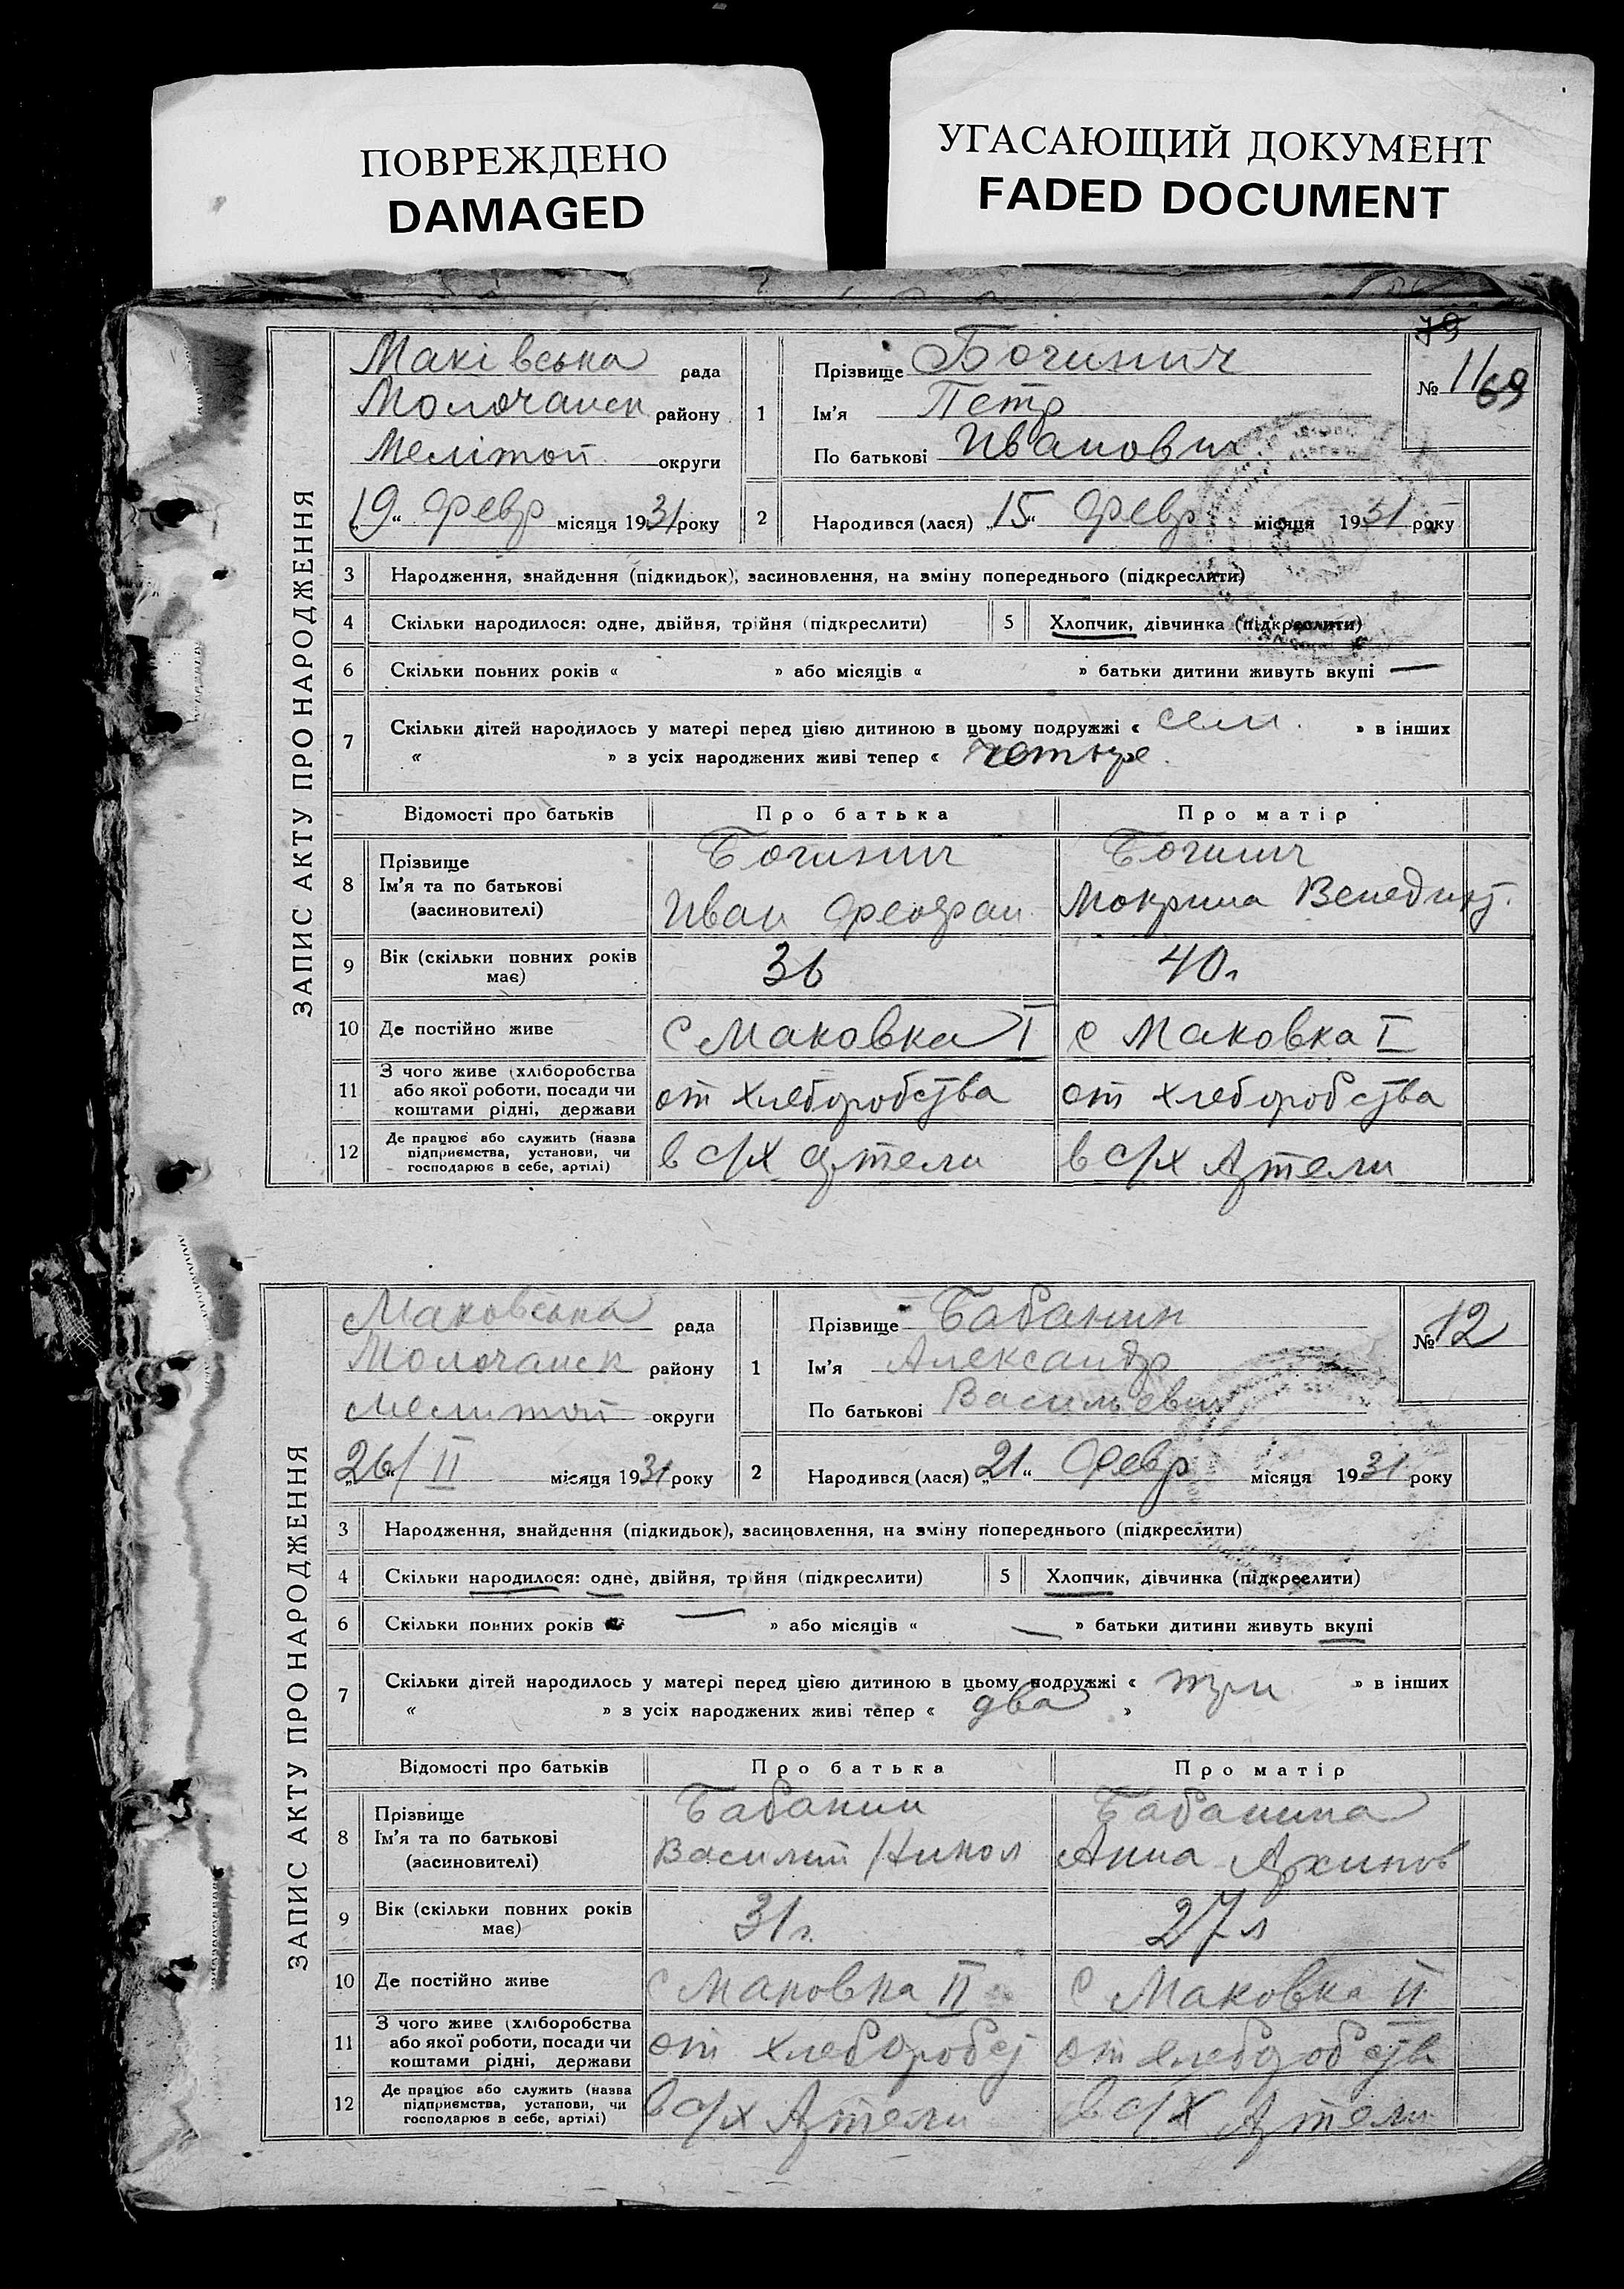 ПОВРЕЖДЕНО
DAMAGED
УГАСАЮЩИЙ ДОКУМЕНТ
FADED DOCUMENT
79
ЗАПИС АКТУ ПРО НАРОДЖЕННЯ
Маківська рада
Молочанск району
Мелітоп округи
„19“ Февр місяця 1931 року
1
Прізвище Богинич
Ім'я Петр
По батькові Иванович
№ 11
69
2 Народився (лася) „15“ Февр місяця 1931 року
3 Народження, знайдення (підкидьок), засиновлення, на зміну попереднього (підкреслити)
4 Скільки народилося: одне, двійня, трійня (підкреслити) 5 Хлопчик, дівчинка (підкреслити)
6 Скільки повних років « » або місяців « » батьки дитини живуть вкупі —
7 Скільки дітей народилось у матері перед цією дитиною в цьому подружжі « семь » в інших
« » з усіх народжених живі тепер « четыре
Відомості про батьків Про батька Про матір
8 Прізвище
Ім'я та по батькові
(засиновителі)
Богинич
Иван Феофан
Богинич
Мокрина Венедикт.
9 Вік (скільки повних років має) 36 40 л
10 Де постійно живе с Маковка I с Маковка I
11 З чого живе (хліборобства
або якої роботи, посади чи
коштами рідні, держави
от хлеборобства от хлеборобства
12 Де працює або служить (назва
підприємства, установи, чи
господарює в себе, артілі)
в с/х артели в с/х Артели
ЗАПИС АКТУ ПРО НАРОДЖЕННЯ
Маковська рада
Молочанск району
Мелитоп округи
„26“/II місяця 1931 року
1
Прізвище Бабанин
Ім'я Александр
По батькові Васильевич
№ 12
2 Народився (лася) „21“ Февр місяця 1931 року
3 Народження, знайдення (підкидьок), засиновлення, на зміну попереднього (підкреслити)
4 Скільки народилося: одне, двійня, трійня (підкреслити) 5 Хлопчик, дівчинка (підкреслити)
6 Скільки повних років « — » або місяців « — » батьки дитини живуть вкупі
7 Скільки дітей народилось у матері перед цією дитиною в цьому подружжі « три » в інших
« » з усіх народжених живі тепер « два »
Відомості про батьків Про батька Про матір
8 Прізвище
Ім'я та по батькові
(засиновителі)
Бабанин
Василий Никол
Бабанина
Анна Архипов
9 Вік (скільки повних років має) 31 г. 27 л
10 Де постійно живе с Маковка II с Маковка II
11 З чого живе (хліборобства
або якої роботи, посади чи
коштами рідні, держави
от хлеборобст от хлеборобств
12 Де працює або служить (назва
підприємства, установи, чи
господарює в себе, артілі)
в с/х Артели в с/х Артели